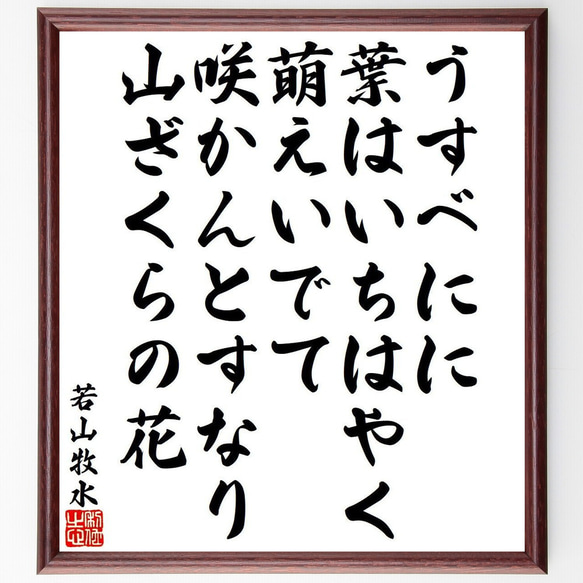 うすべにに
葉はいちはやく
萌えいでて
咲かんとすなり
山ざくらの花
若山牧水